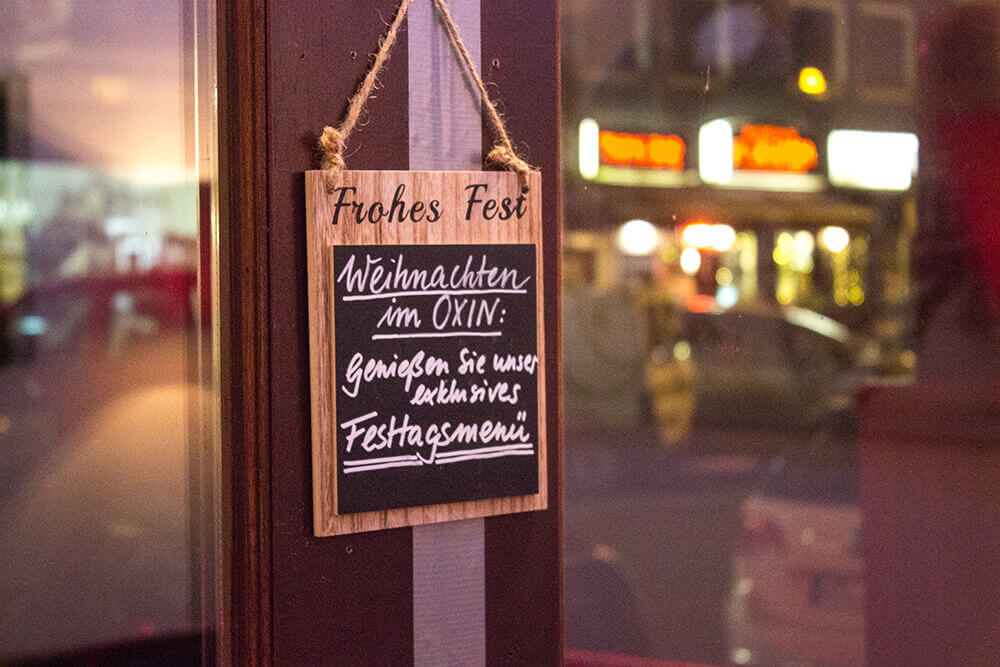 Frohes Fest
Weihnachten
im OXIN:
Genießen Sie unser
exklusives
Festtagsmenü